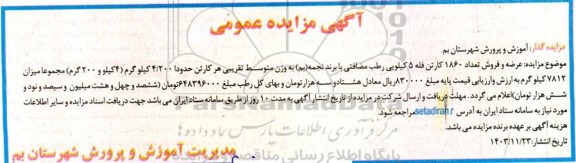 آگهی مزایده عمومی
مزایده گذار: آموزش و پرورش شهرستان بم
موضوع مزایده: عرضه و فروش تعداد ۱۸۶۰ کارتن فله ۵ کیلویی رطب مضافتی با برند نجمه(بم) به وزن متوسط تقریبی هر کارتن حدودا ۴/۲۰۰ کیلو گرم (۴کیلو و ۲۰۰ گرم) مجموعا میزان
۷۸۱۲ کیلو گرم به ارزش وارزیابی قیمت پایه مبلغ ۸۳۰۰۰۰ ریال معادل هشتادوسه هزارتومان و بهای کل رطب مبلغ ۶۴۸۳۹۶۰۰۰تومان (ششصد و چهل و هشت میلیون و سیصد و نود و
شش هزار تومان)اعلام می گردد. مهلت دریافت و ارسال شرکت در مزایده از تاریخ انتشار آگهی به مدت ۱۰ روز از طریق سامانه ستاد ایران می باشد جهت دریافت اسناد مزایده و سایر اطلاعات
مورد نیاز به سامانه ستاد ایران به آدرس setadiran.ir مراجعه شود.
هزینه آگهی بر عهده برنده مزایده می باشد.
تاریخ انتشار:۱۴۰۳/۱۱/۲۳
مدیریت آموزش و پرورش شهرستان بم
پایگاه اطلاع رسانی مناقصات